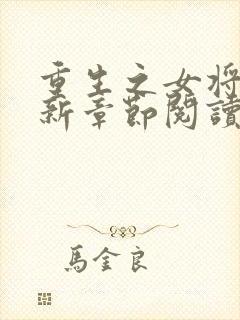 重生之女将
新章節閱讀
馬金良